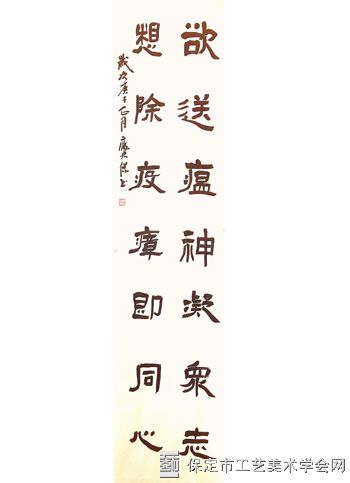 欲送瘟神凝眾志
想除疫瘴即同心
歲次庚子四月
保定市工艺美术学会网